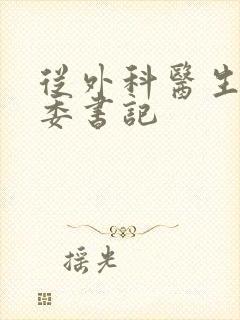 從外科醫生
委書記
摇光